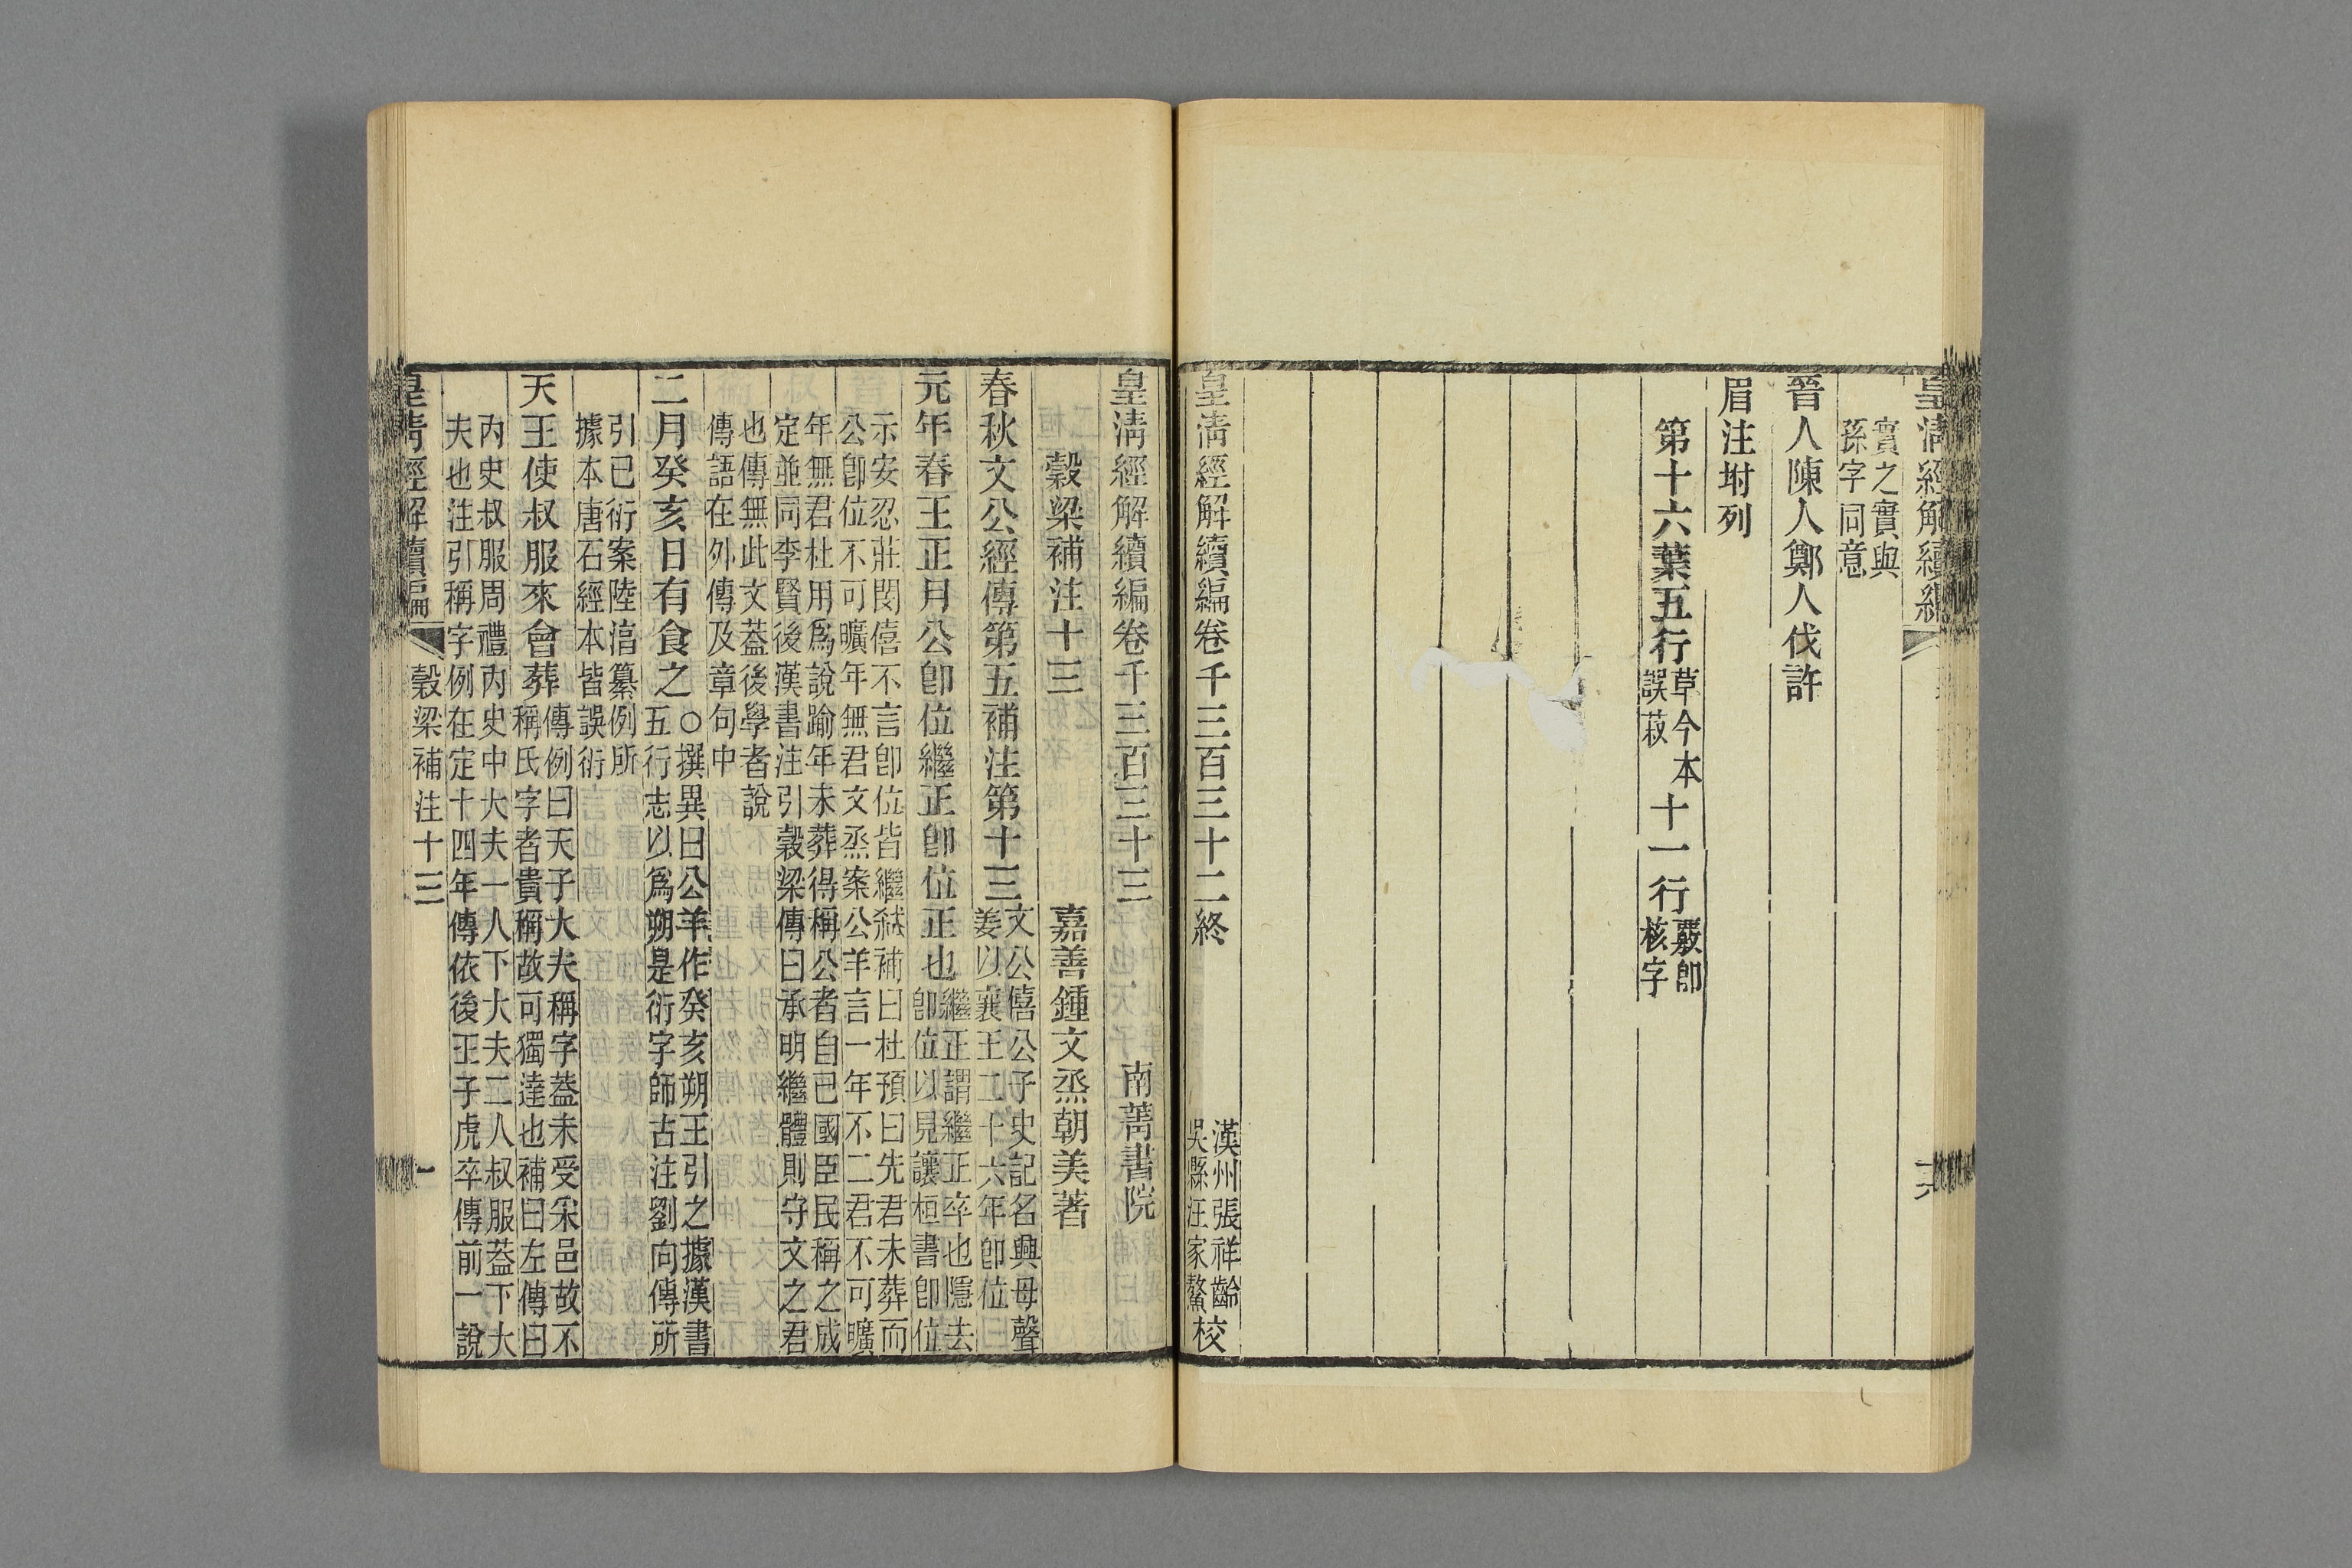 皇清經解續編
實之實與
孫字同意
晉人陳人鄭人伐許
眉注坿列
第十六葉五行草今本誤菽十一行覈卽核字
皇清經解續編卷千三百三十二終
漢州張祥齡
吳縣汪家驁校
皇清經解續編卷千三百三十三 南菁書院
穀梁補注十三 嘉善鍾文烝朝美著
春秋文公經傳第五補注第十三
文公僖公子史記名興母聲
姜以襄王二十六年卽位曰
元年春王正月公卽位繼正卽位正也
繼正謂繼正卒也隱去
卽位以見讓桓書卽位
示安忍莊閔僖不言卽位皆繼弒補曰杜預曰先君未葬而
公卽位不可曠年無君文烝案公羊言一年不二君不可曠
年無君杜用爲說踰年未葬得稱公者自已國臣民稱之成
定並同李賢後漢書注引穀梁傳曰承明繼體則守文之君
也傳無此文蓋後學者說
傳語在外傳及章句中
二月癸亥日有食之
○撰異曰公羊作癸亥朔王引之據漢書
五行志以爲朔是衍字師古注劉向傳所
引已衍案陸淳纂例所
據本唐石經本皆誤衍
天王使叔服來會葬
傳例曰天子大夫稱字蓋未受采邑故不
稱氏字者貴稱故可獨達也補曰左傳曰
內史叔服周禮內史中大夫一人下大夫二人叔服蓋下大
夫也注引稱字例在定十四年傳依後王子虎卒傳前一說
皇清經解續編 穀梁補注十三 一